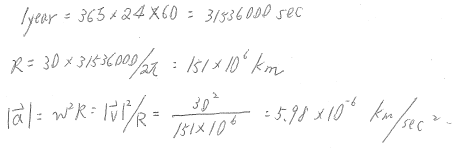 1 year = 365 × 24 × 60 = 31536000 sec
R = 30 × 31536000/2π = 151 × 10⁶ km
|a⃗| = w²R = |v⃗|²/R = 30²/(151×10⁶) = 5.98 × 10⁻⁶ km/sec².